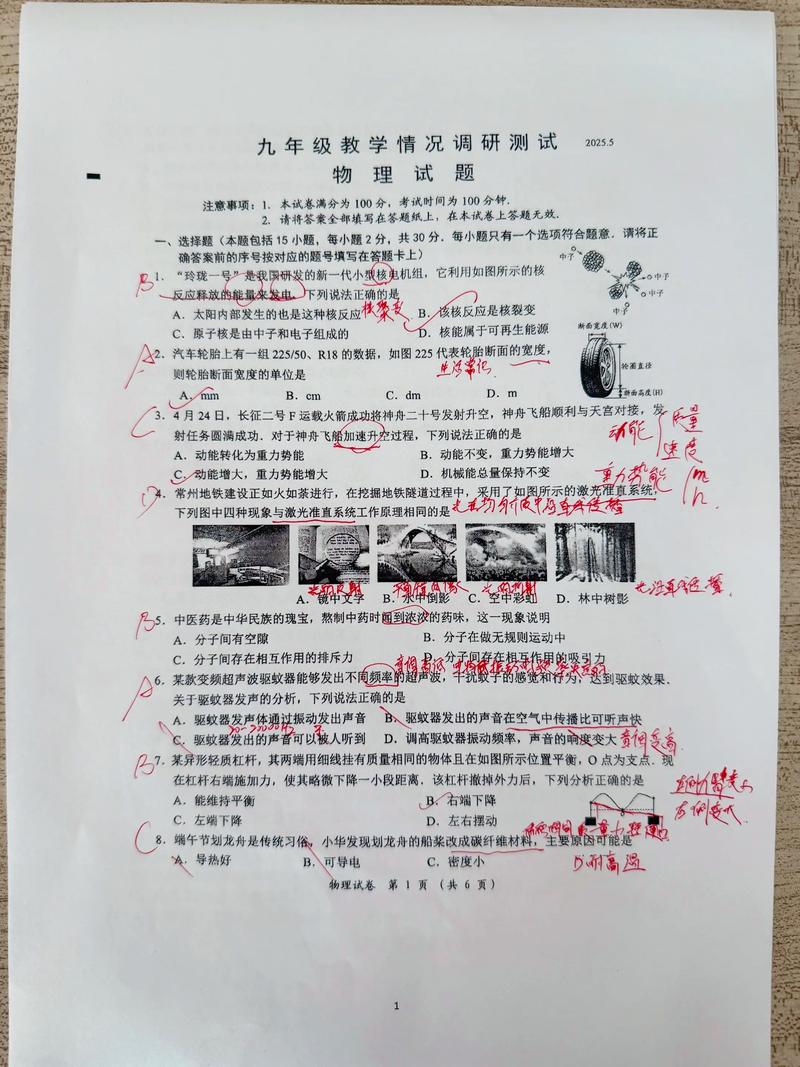 九年级教学情况调研测试 2025.5
物 理 试 题
注意事项：1. 本试卷满分为100分，考试时间为100分钟.
2. 请将答案全部填写在答题纸上，在本试卷上答题无效.
一、选择题（本题包括15小题，每小题2分，共30分．每小题只有一个选项符合题意．请将正
确答案前的序号按对应的题号填写在答题卡上）
B 1. “玲珑一号”是我国研发的新一代小型核电机组，它利用如图所示的核
反应释放的能量来发电．下列说法正确的是
A．太阳内部发生的也是这种核反应 核聚变 B．该核反应是核裂变
C．原子核是由中子和电子组成的 D．核能属于可再生能源
中子
中子
中子
中子
A 2. 汽车轮胎上有一组225/50、R18的数据，如图225代表轮胎断面的宽度，
则轮胎断面宽度的单位是 生活常识
A．mm B．cm C．dm D．m
断面宽度(W)
轮圈直径
断面高度(H)
C 3. 4月24日，长征二号F运载火箭成功将神舟二十号发射升空，神舟飞船顺利与天宫对接，发
射任务圆满成功．对于神舟飞船加速升空过程，下列说法正确的是
A．动能转化为重力势能 B．动能不变，重力势能增大
C．动能增大，重力势能增大 D．机械能总量保持不变
动能 质量
速度
重力势能 m
h
D 4. 常州地铁建设正如火如荼进行，在挖掘地铁隧道过程中，采用了如图所示的激光准直系统，
下列图中四种现象与激光准直系统工作原理相同的是
光的反射 光的折射 光沿直线传播
A．镜中文字 B．水中倒影 C．空中彩虹 D．林中树影
B 5. 中医药是中华民族的瑰宝，熬制中药时闻到浓浓的药味，这一现象说明
A．分子间有空隙 B．分子在做无规则运动中
C．分子间存在相互作用的排斥力 D．分子间存在相互作用的吸引力
A 6. 某款变频超声波驱蚊器能够发出不同频率的超声波，干扰蚊子的感觉和行为，达到驱蚊效果．
关于驱蚊器发声的分析，下列说法正确的是
A．驱蚊器发声体通过振动发出声音 B．驱蚊器发出的声音在空气中传播比可听声快
C．驱蚊器发出的声音可以被人听到 D．调高驱蚊器振动频率，声音的响度变大 音调变高
B 7. 某异形轻质杠杆，其两端用细线挂有质量相同的物体且在如图所示位置平衡，O点为支点．现
在杠杆右端施加力，使其略微下降一小段距离．该杠杆撤掉外力后，下列分析正确的是
A．能维持平衡 B．右端下降
C．左端下降 D．左右摆动
C 8. 端午节划龙舟是传统习俗，小华发现划龙舟的船桨改成碳纤维材料，主要原因可能是
A．导热好 B．可导电 C．密度小 D.耐高温
物理试卷 第 1 页 （共 6 页）
1